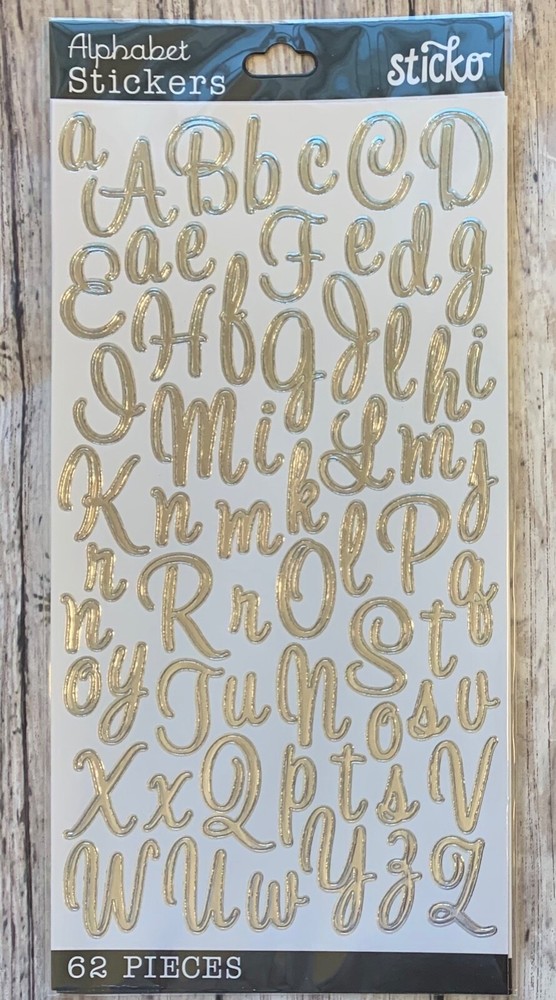 Alphabet
Stickers
sticko
a A B b c C D
E a e F e d g
H f g J l h i
I M i L m j
K n m k l P q
r R r O S t
n o y T u N o s v
X x Q p t s V
W U u w Y z Z
62 PIECES